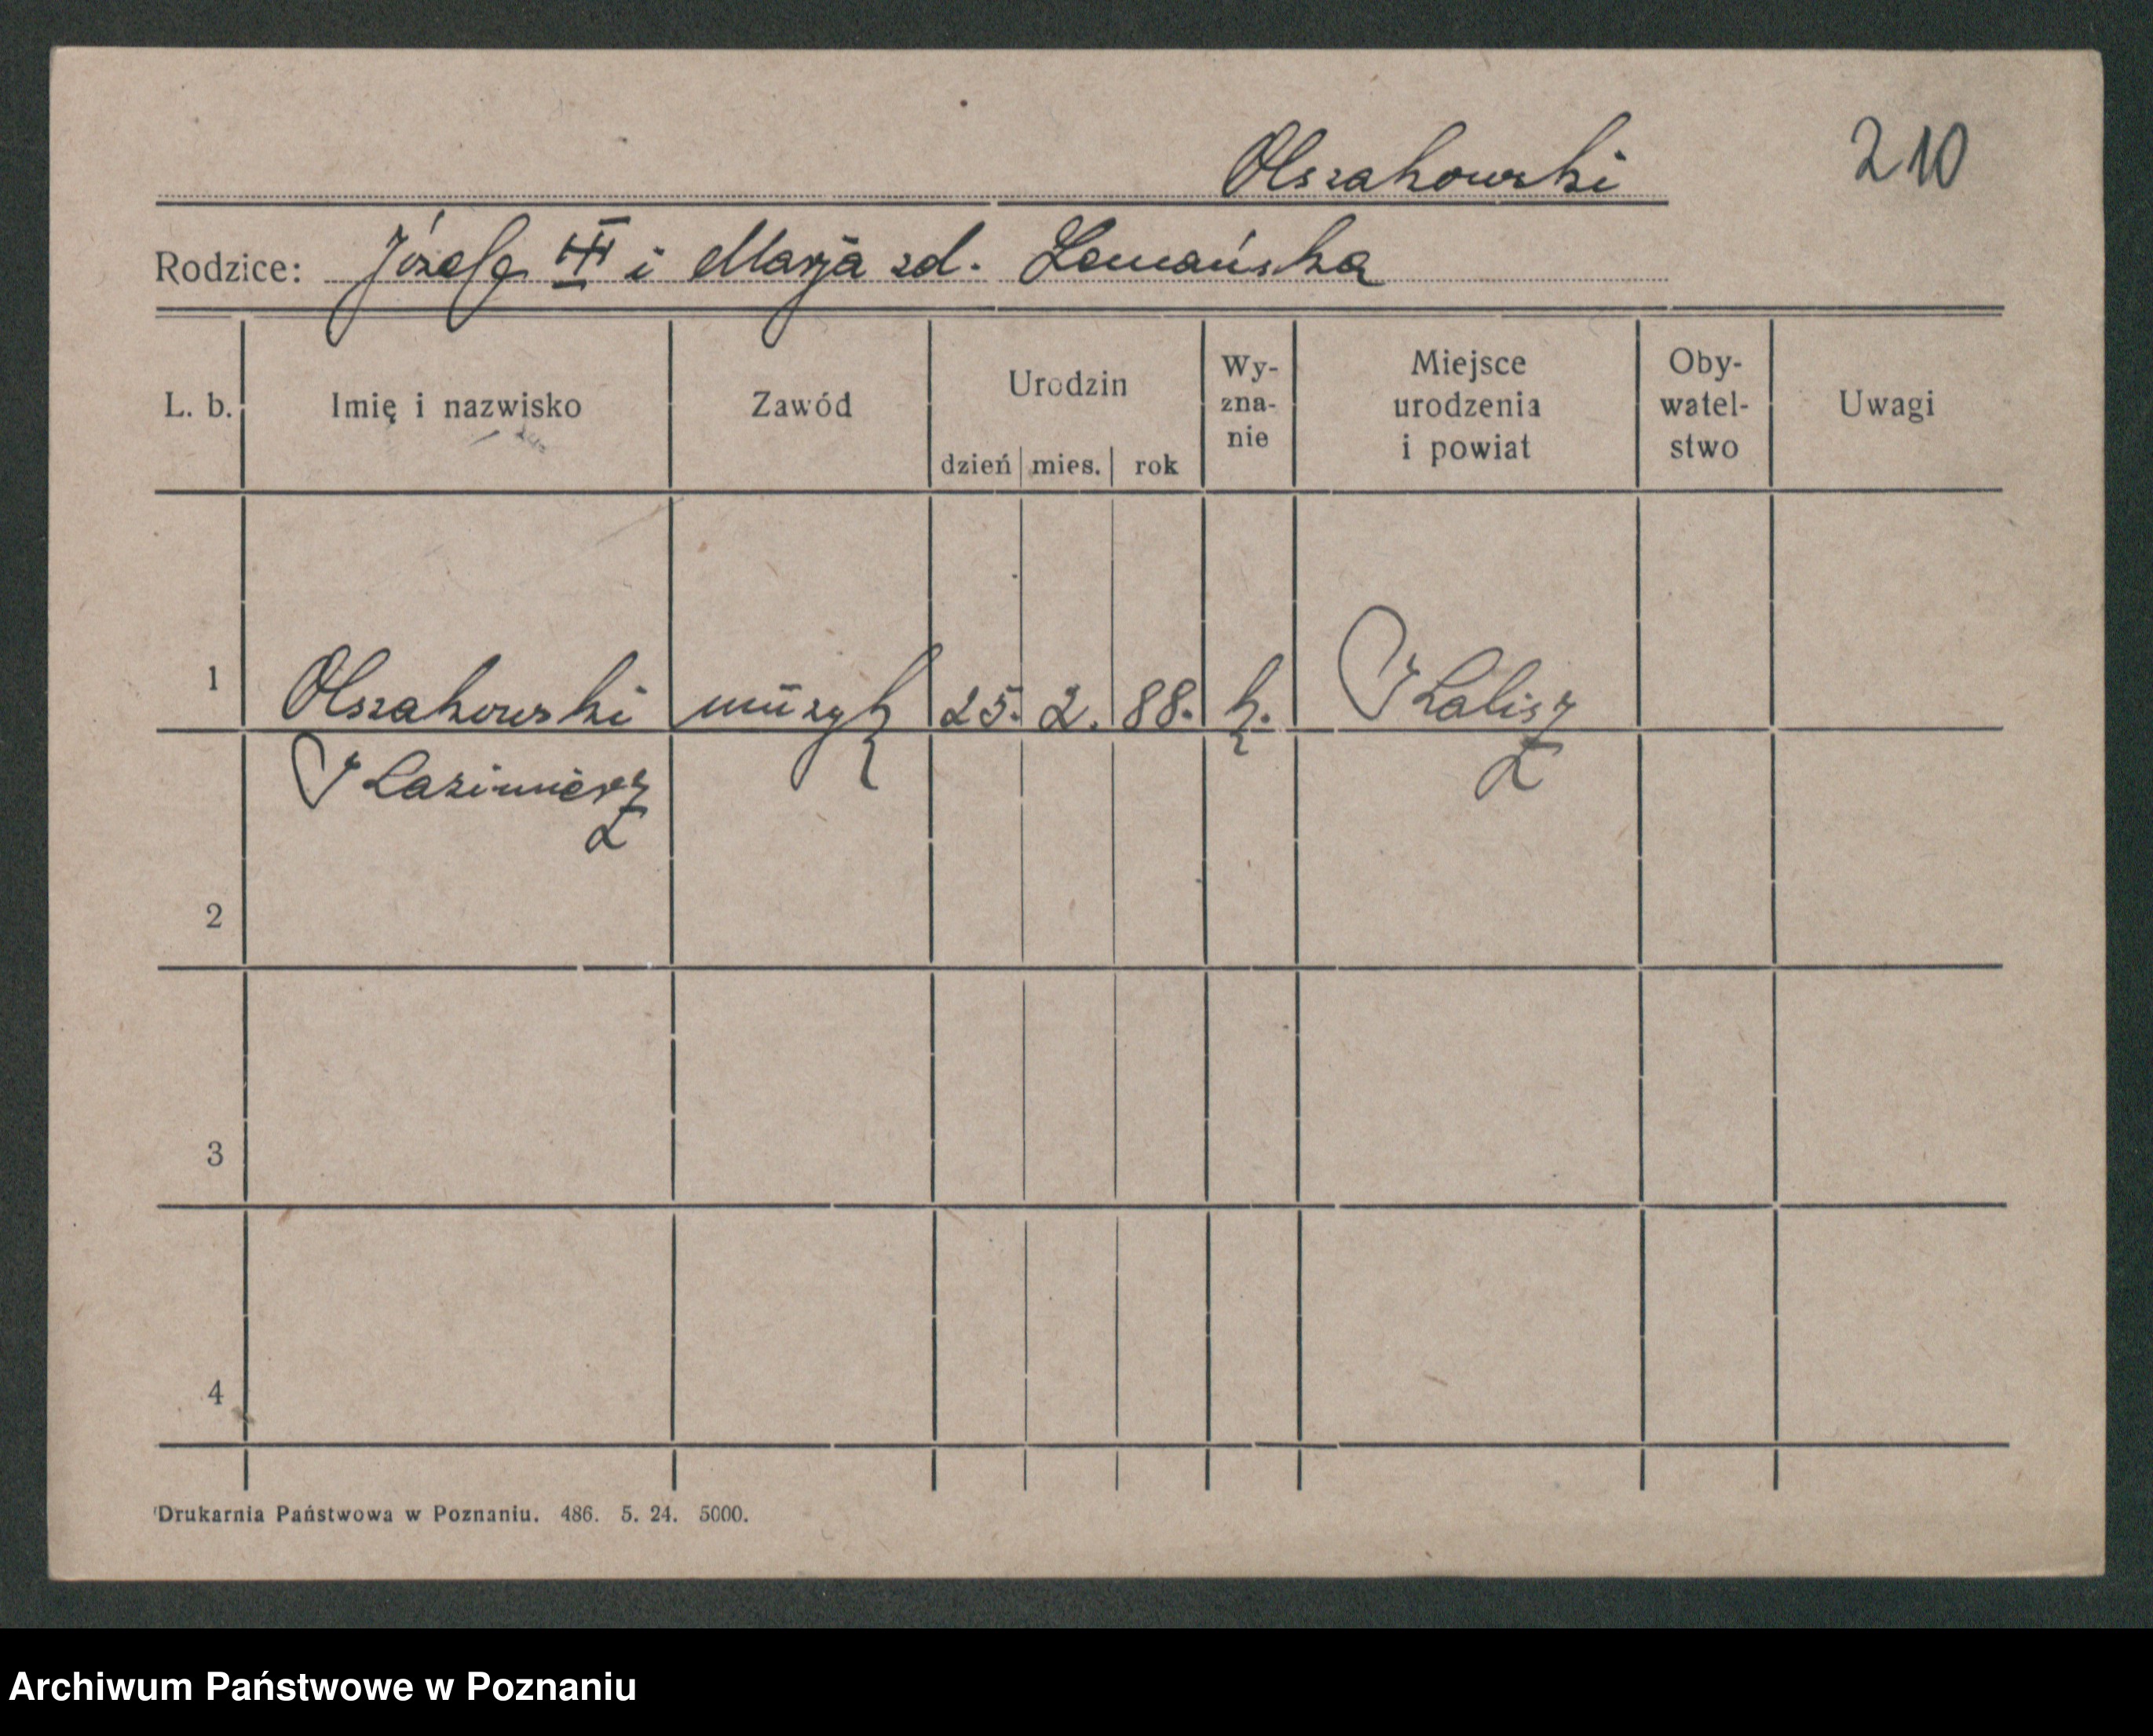 Olszakowski
210
Rodzice: Józefa i Marja zd. Lemańska
L. b. Imię i nazwisko Zawód Urodzin dzień mies. rok Wy-zna-nie Miejsce urodzenia i powiat Oby-watel-stwo Uwagi
1 Olszakowski muzyk 25. 2. 88. k. Kalisz
Kazimierz
2
3
4
Drukarnia Państwowa w Poznaniu. 486. 5. 24. 5000.
Archiwum Państwowe w Poznaniu